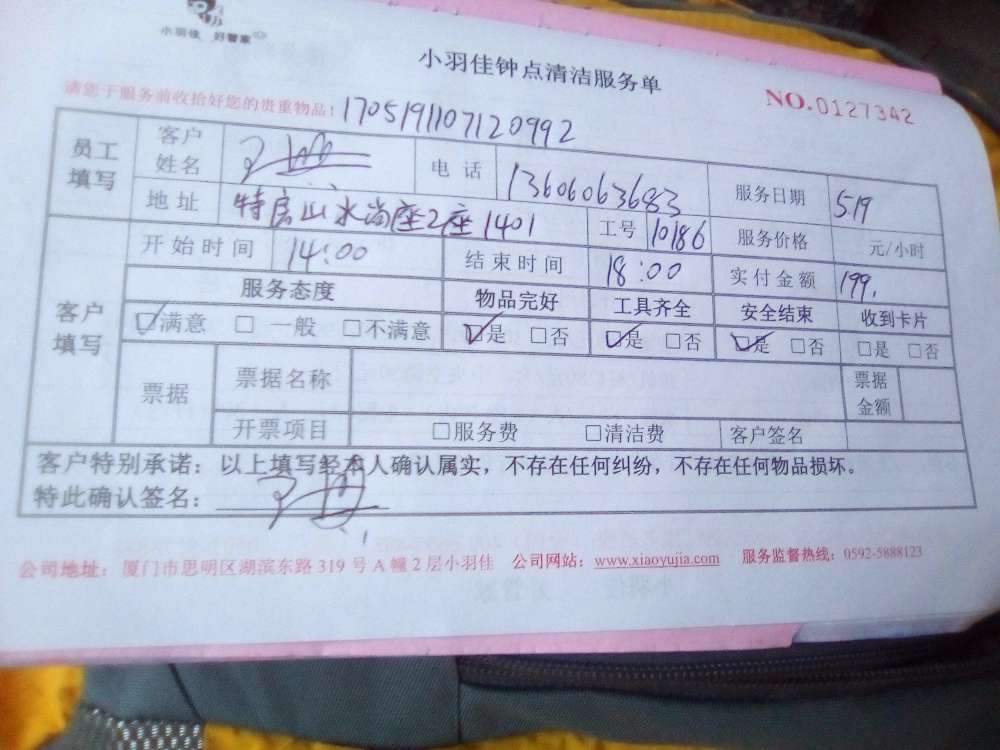 小羽佳 好管家
小羽佳钟点清洁服务单
NO.0127342
请您于服务前收拾好您的贵重物品！170519110712099​2
员工填写 客户姓名 电话 13606063683 服务日期 5.19
地址 特房山水尚座2座1401 工号 10186 服务价格 元/小时
客户填写 开始时间 14:00 结束时间 18:00 实付金额 199.
服务态度 物品完好 工具齐全 安全结束 收到卡片
☑满意 □一般 □不满意 ☑是 □否 ☑是 □否 ☑是 □否 □是 □否
票据 票据名称 票据金额
开票项目 □服务费 □清洁费 客户签名
客户特别承诺：以上填写经本人确认属实，不存在任何纠纷，不存在任何物品损坏。
特此确认签名：
公司地址：厦门市思明区湖滨东路319号A幢2层小羽佳 公司网站：www.xiaoyujia.com 服务监督热线：0592-5888123